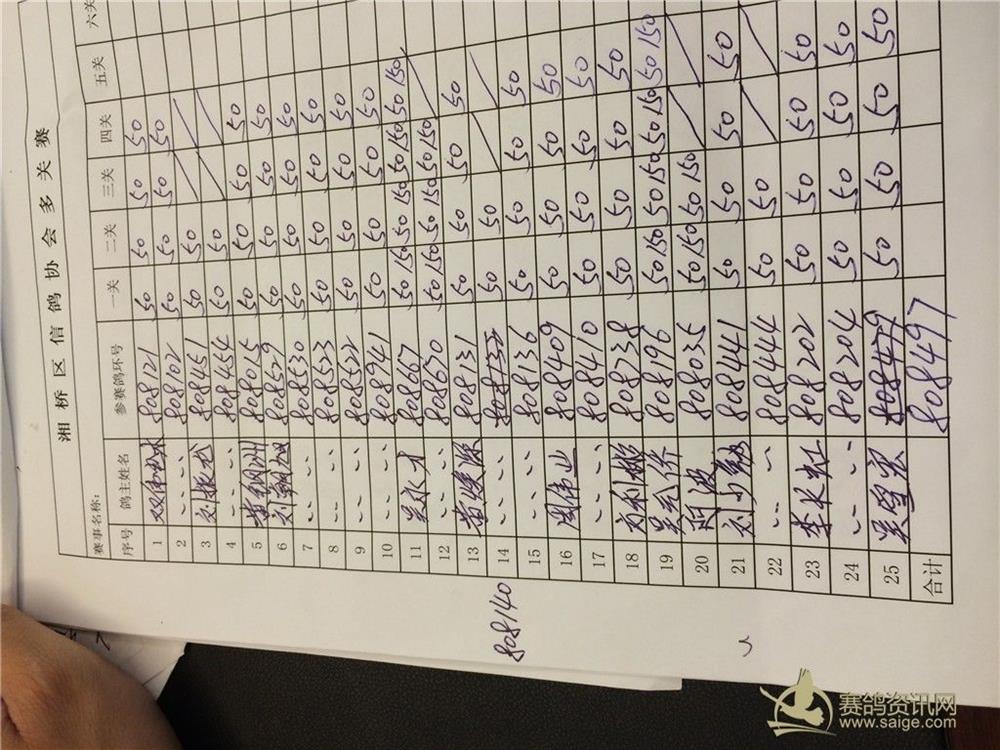 湘桥区信鸽协会多关赛
赛事名称：
序号 鸽主姓名 参赛鸽环号 一关 二关 三关 四关 五关 六关
1 808121 50 50 50 50
2 808102 50 50 50 50
3 刘振龙 808451 50 50
4 808454 50 50
5 808015 50 50 50 50
6 808529 50 50 50 50
7 808530 50 50 50 50
8 808523 50 50 50 50
9 808522 50 50 50 50
10 808941 50 50 50 50
11 吴永才 808667 50 150 50 150 50 150 50 150
12 808670 50 150 50 150 50 150
13 808131 50 50 50 50
14 808132 50 50
15 808136 50 50 50 50
16 周伟业 808409 50 50 50 50 50
17 808410 50 50 50 50 50
18 刘利彬 808738 50 50 50 50 50
19 808196 50 150 50 150 50 150 50 150 50 150
20 阿波 808035 50 150 50 150 50 150
21 808441 50 50 50 50 50
22 808444 50 50 50
23 李木松 808202 50 50 50 50 50
24 808204 50 50 50 50 50
25 50 50 50 50 50
合计 808497
808140
赛鸽资讯网
www.saige.com